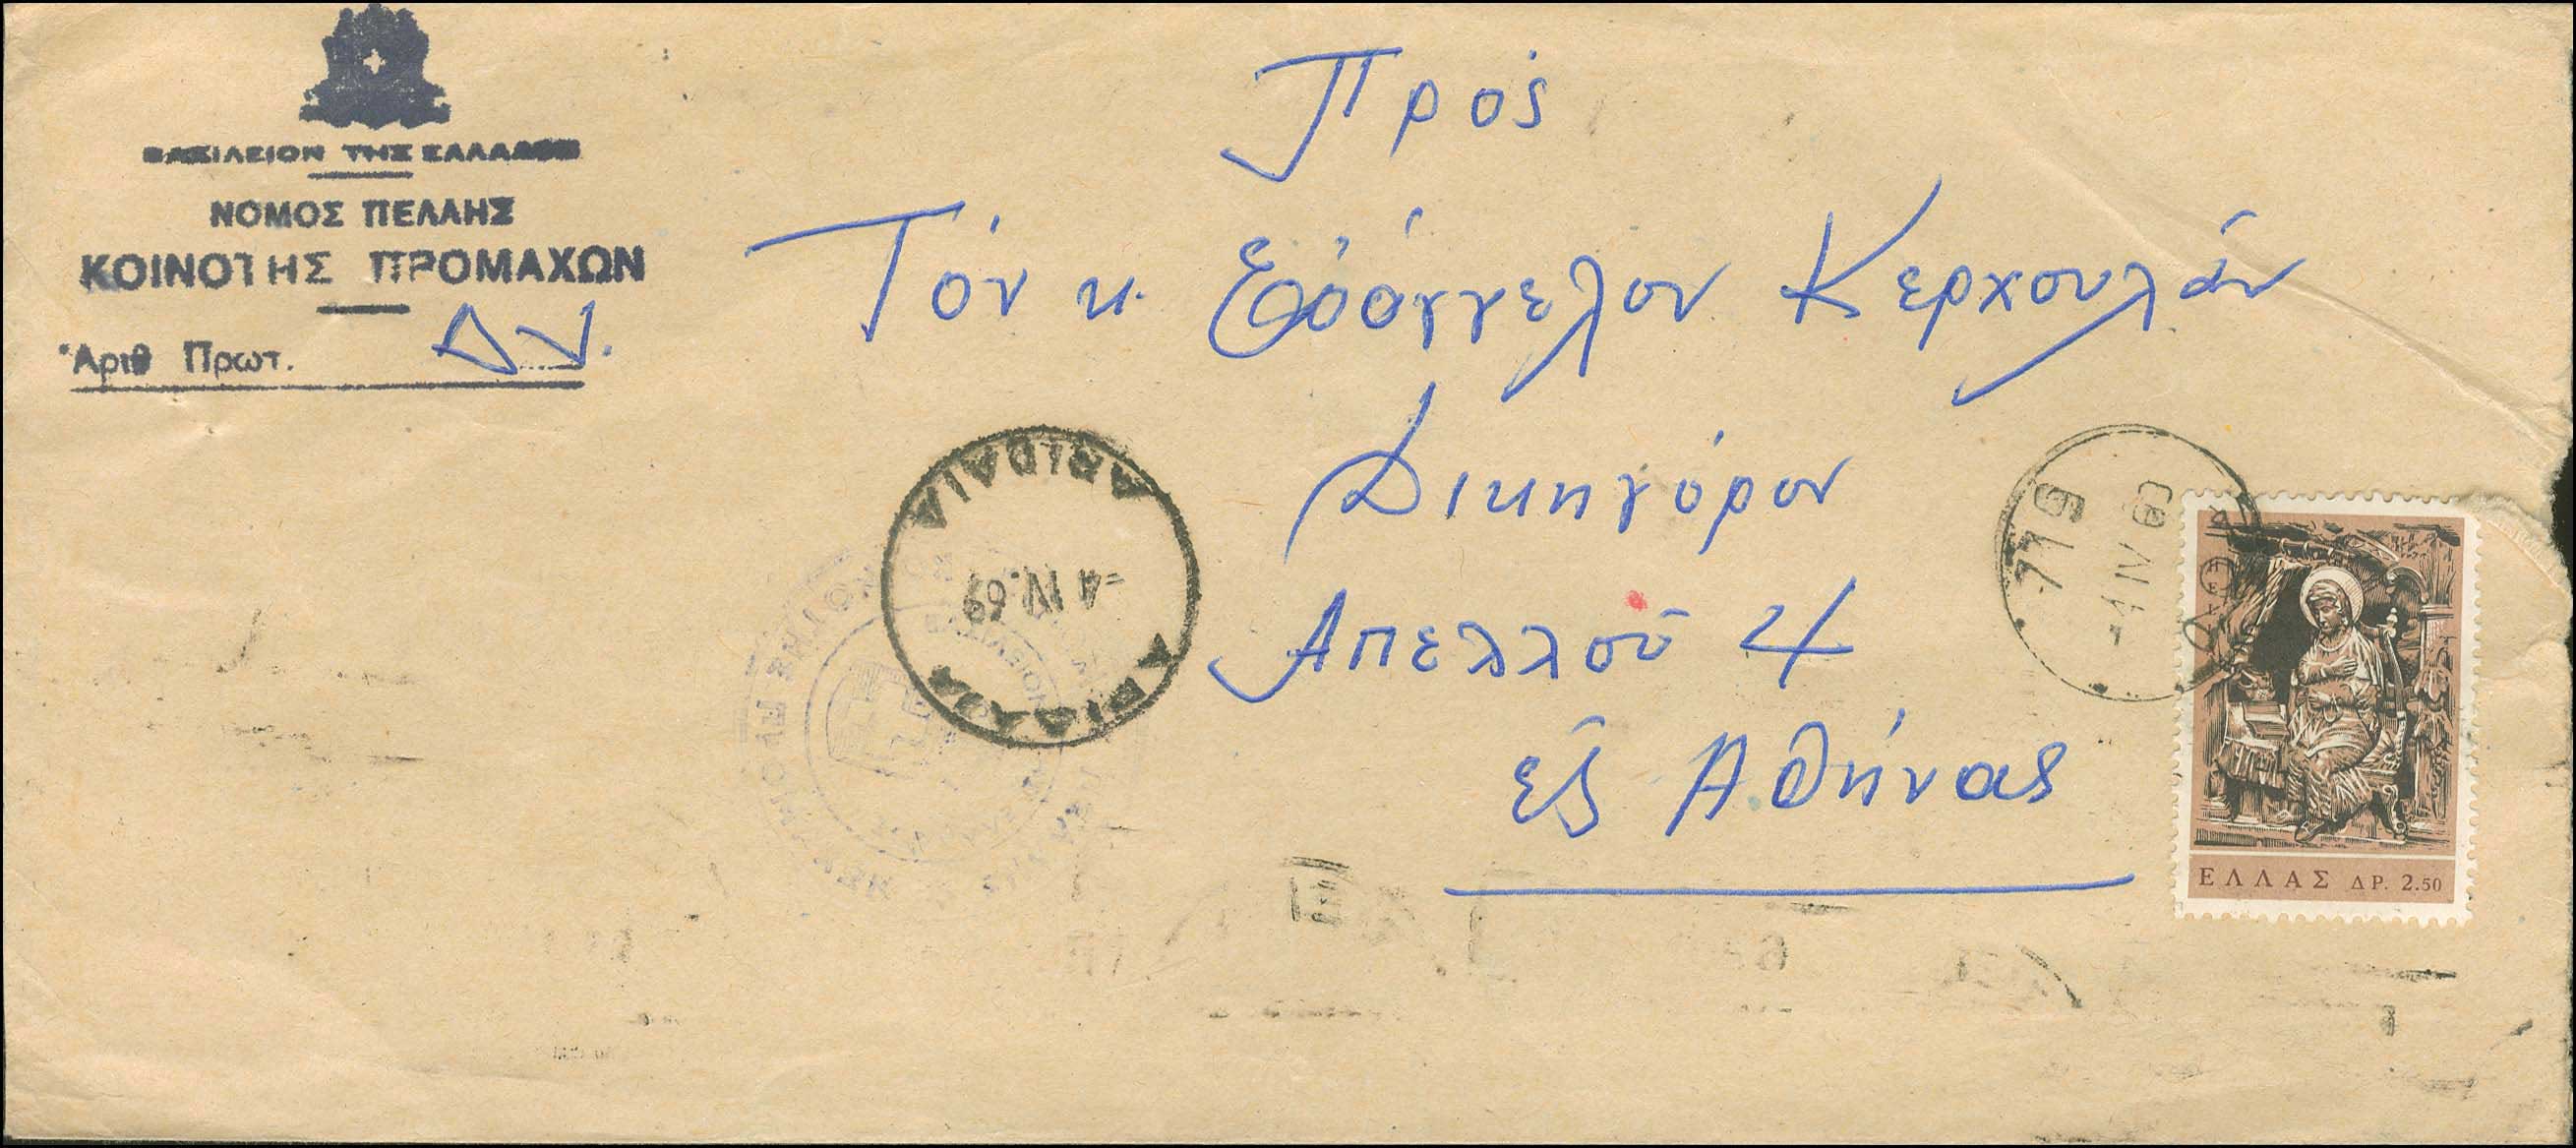 ΒΑΣΙΛΕΙΟΝ ΤΗΣ ΕΛΛΑΔΟΣ
ΝΟΜΟΣ ΠΕΛΛΗΣ
ΚΟΙΝΟΤΗΣ ΠΡΟΜΑΧΩΝ
Ἀριθ Πρωτ. ΔΥ.
Πρός
Τόν κ. Εὐάγγελον Κερχουλάν
Δικηγόρον
Ἀπελλοῦ 4
εἰς Ἀθήνας
ΑΡΙΔΑΙΑ
-4 IV.69
ΑΡΙΔΑΙΑ
719
-4 IV 69
ΕΛΛΑΣ ΔΡ. 2.50